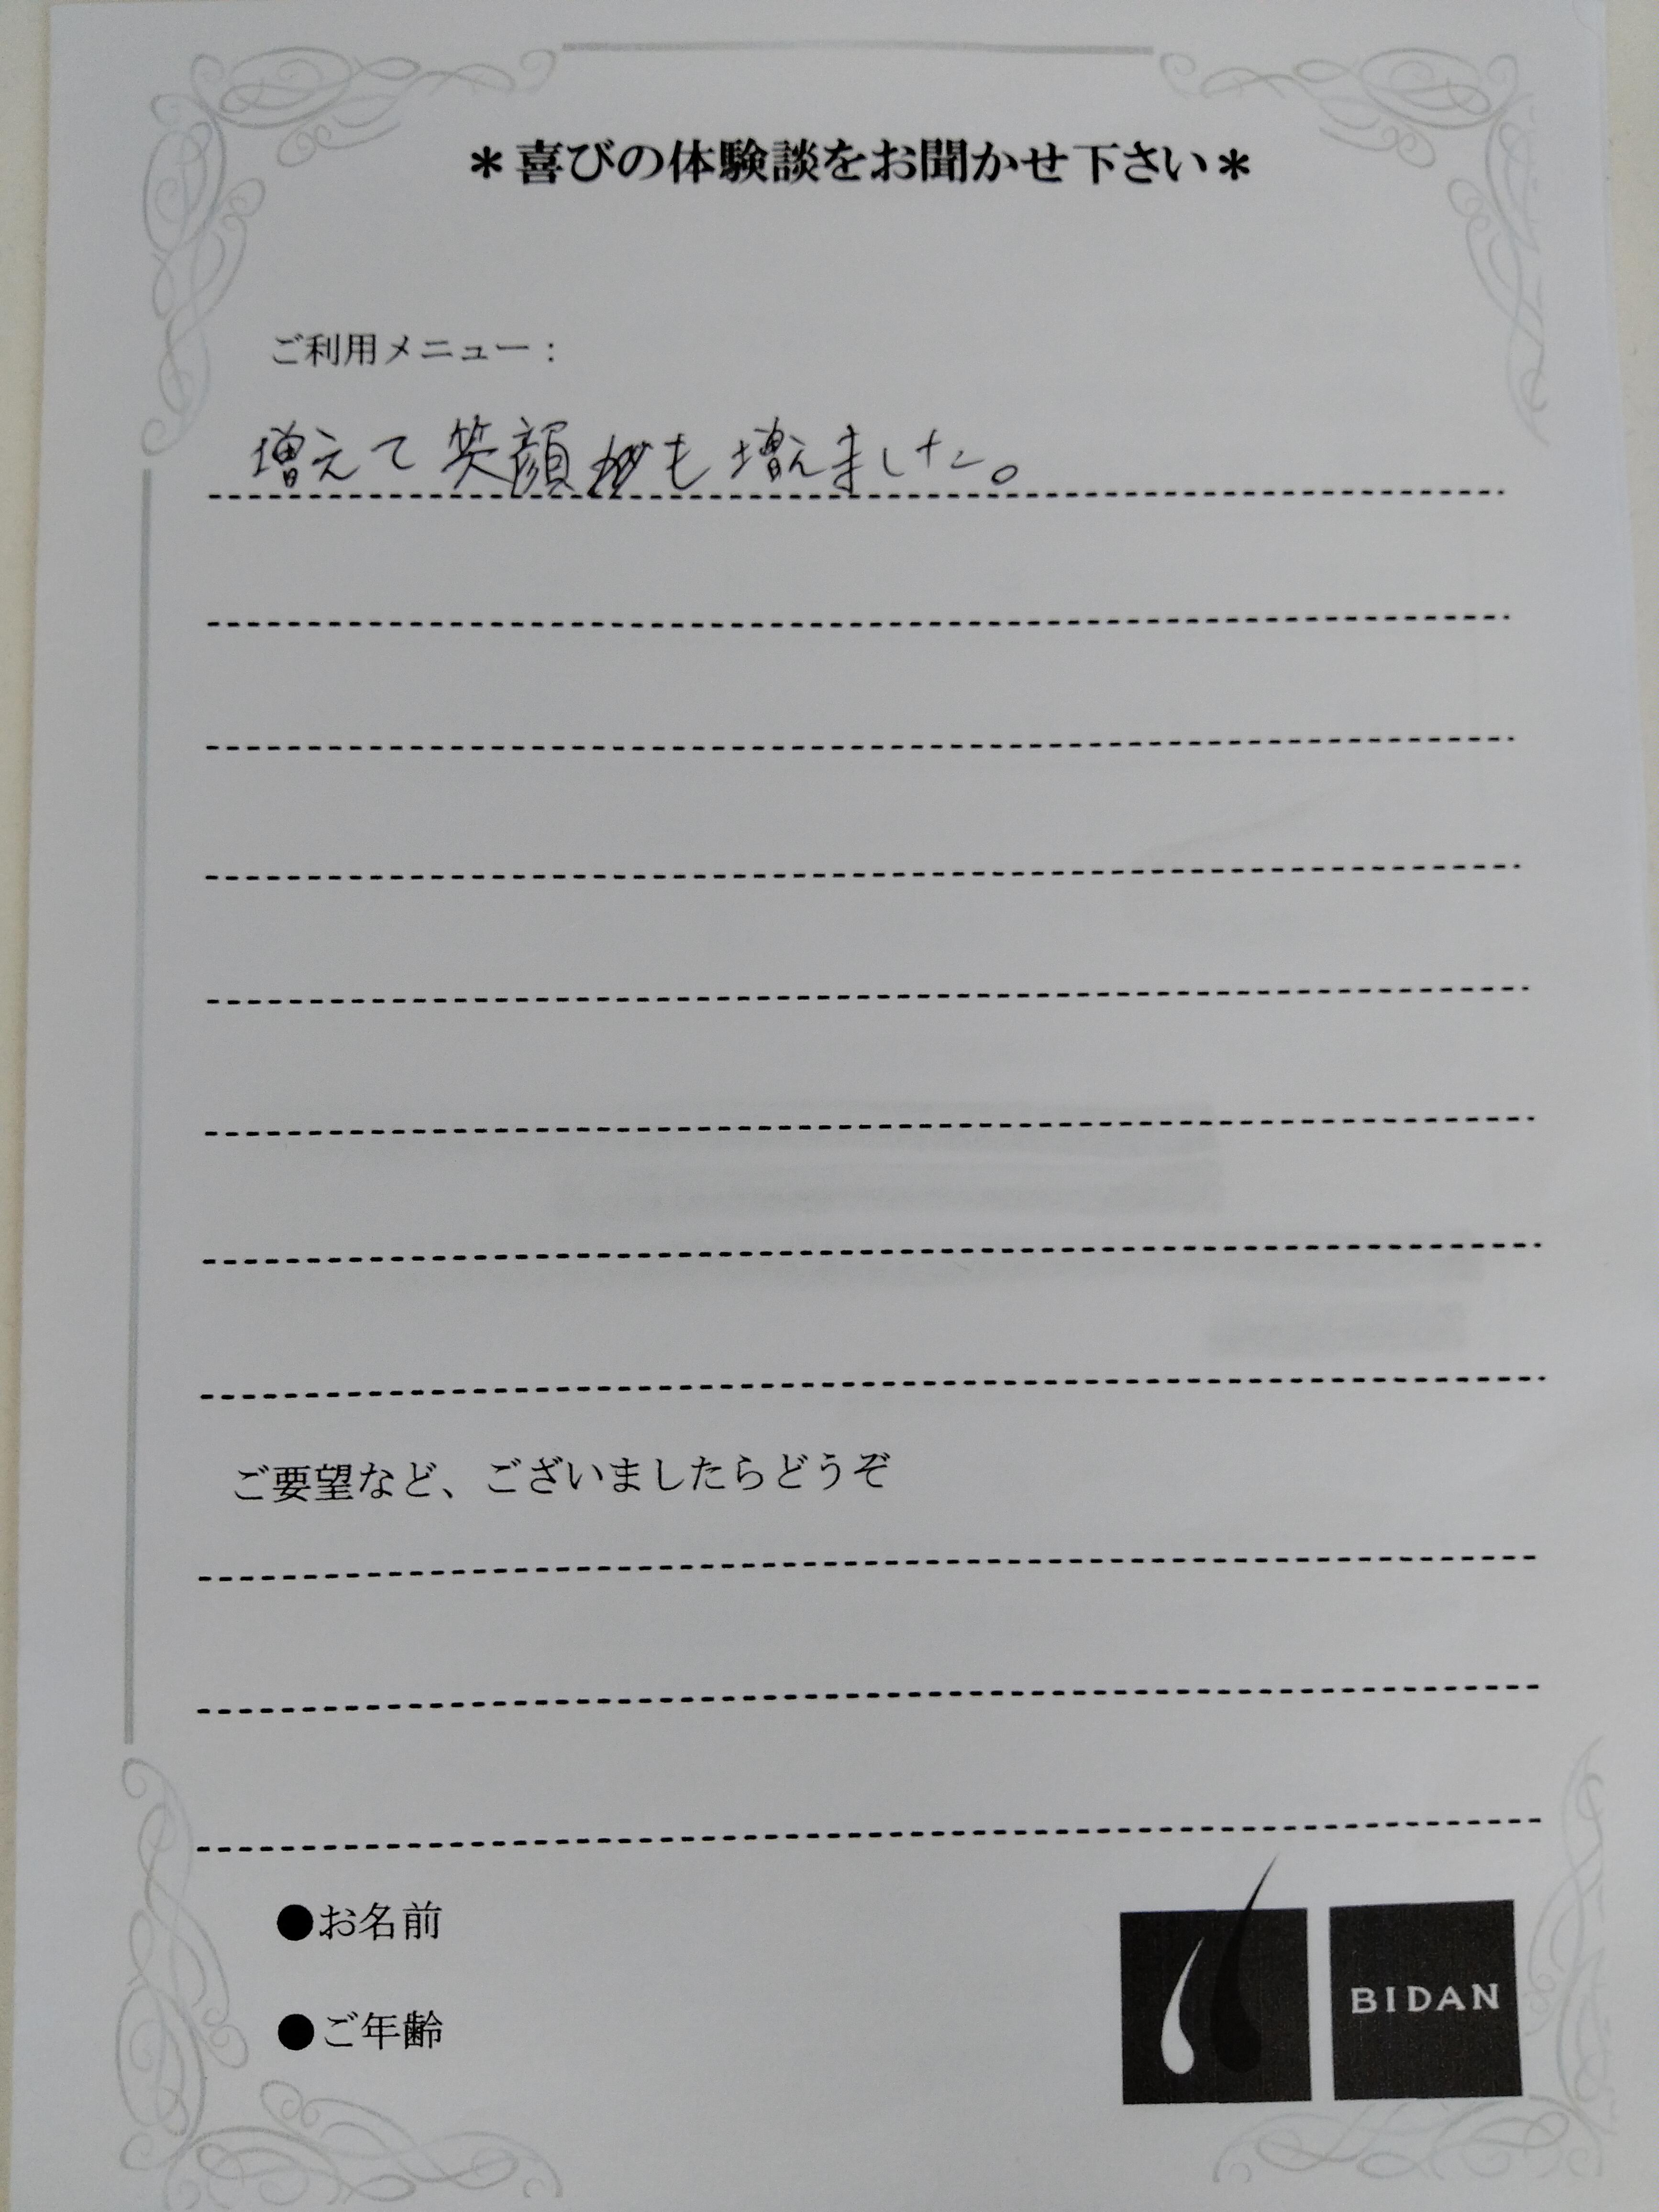 ＊喜びの体験談をお聞かせ下さい＊
ご利用メニュー：
増えて笑顔も増えました。
ご要望など、ございましたらどうぞ
●お名前
●ご年齢
BIDAN